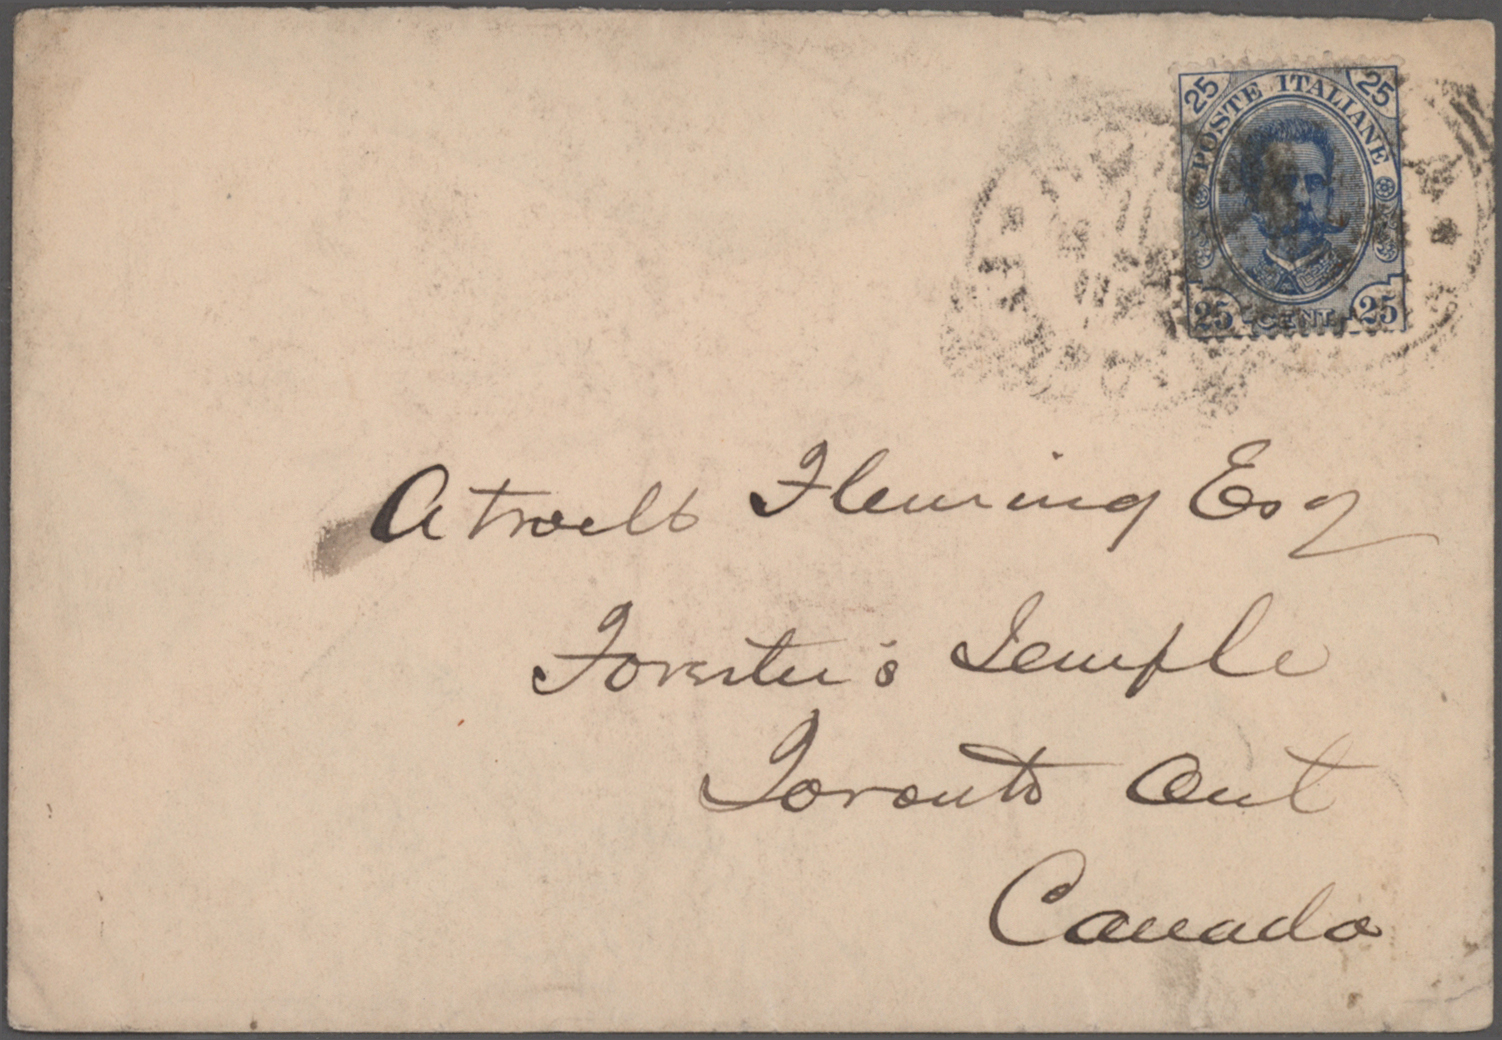 25 POSTE ITALIANE 25
25 CENT. 25
Atwell Fleming Esq
Forester's Temple
Toronto Ont
Canada